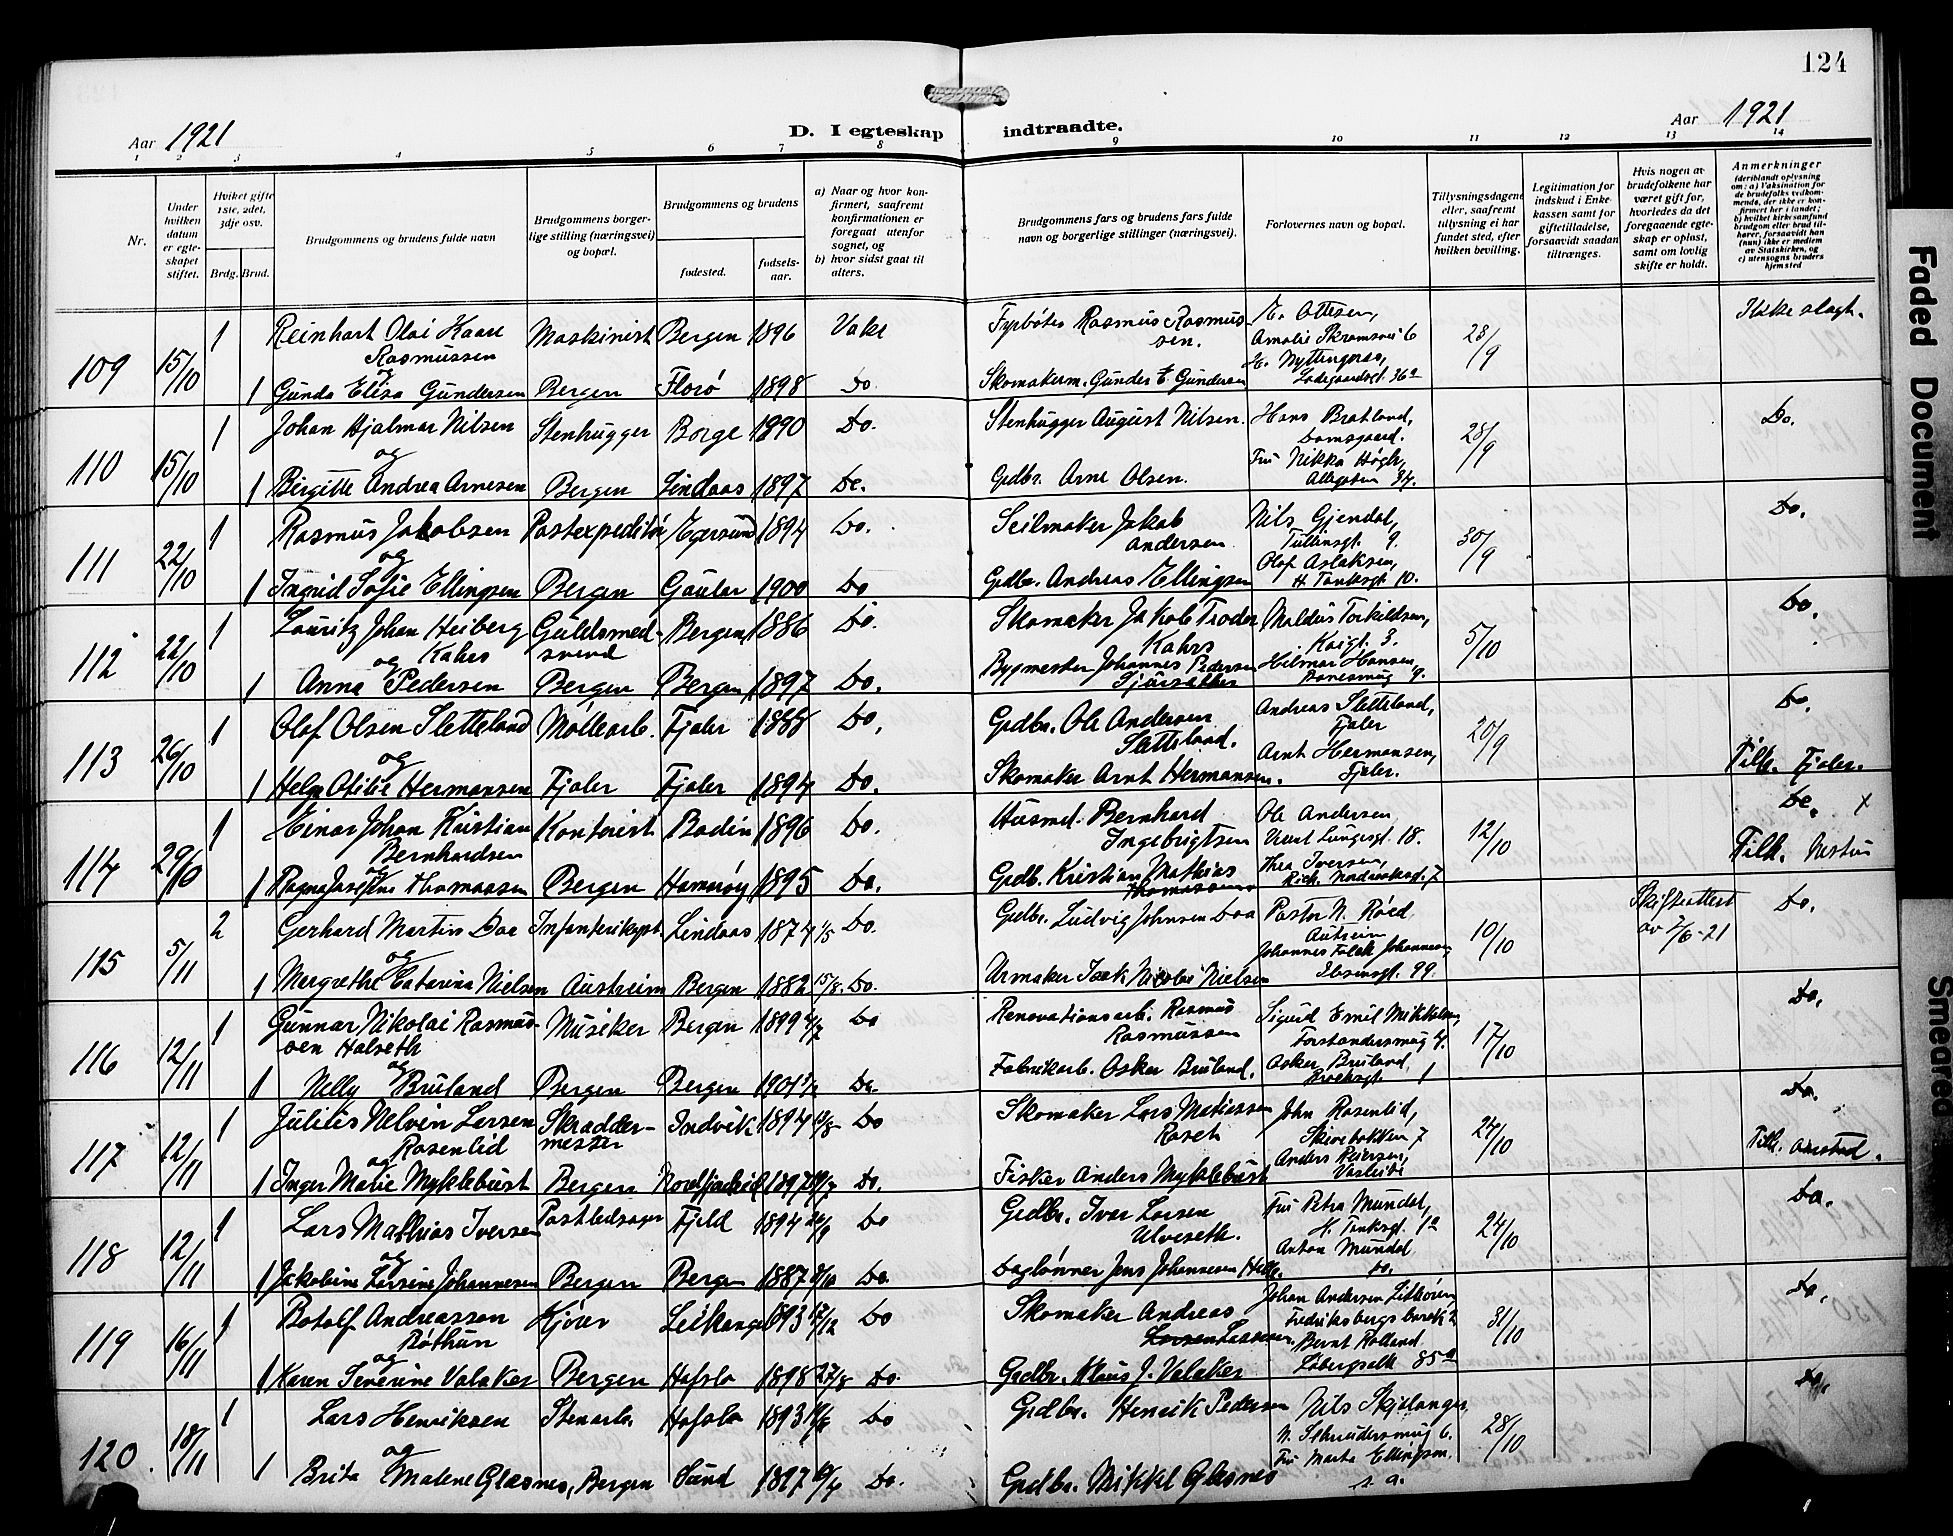 124
Aar 1921
D. I egteskap indtraadte.
Aar 1921
1 2 3 4 5 6 7 8 9 10 11 12 13 14
Nr.
Under hvilken datum er egteskapet stiftet.
Hvilket gifte 1ste, 2det, 3dje osv.
Brdg. Brud.
Brudgommens og brudens fulde navn
Brudgommens borgerlige stilling (næringsvei) og bopæl.
Brudgommens og brudens
fødested.
fødselsaar.
a) Naar og hvor konfirmert, saafremt konfirmationen er foregaat utenfor sognet, og
b) hvor sidst gaat til alters.
Brudgommens fars og brudens fars fulde navn og borgerlige stillinger (næringsvei).
Forlovernes navn og bopæl.
Tillysningsdagene eller, saafremt tillysning ei har fundet sted, efter hvilken bevilling.
Legitimation for indskud i Enkekassen samt for giftetilladelse, forsaavidt saadan tiltrænges.
Hvis nogen av brudefolkene har været gift før, hvorledes da det foregaaende egteskap er opløst, samt om lovlig skifte er holdt.
Anmerkninger
(deriblandt oplysning om: a) Vaksination for de brudefolks vedkommende, der ikke er konfirmert her i landet; b) hvilket kirkesamfund brudgom eller brud tilhører, forsaavidt han (hun) ikke er medlem av Statskirken, og c) utensogns bruders hjemsted
109 15/10 1 Reinhart Olai Kaare Rasmussen Maskinist Bergen 1896 Fyrbøter Rasmus Rasmussen. E. Ottesen, Amalie Skramsvei 6 28/9 Ikke slegt.
og
1 Gunda Elisa Gundersen Bergen Florø 1898 Do. Skomakerm. Gunder E. Gundersen Ladegaardsgt. 36a
110 15/10 1 Johan Hjalmar Nilsen Stenhugger Borge 1890 Do. Stenhugger August Nilsen. Hans Bratland, Damsgaard. 28/9 Do.
og
1 Birgitte Andrea Arnesen Bergen Lindaas 1897 Do. Grdbr. Arne Olsen. Fru Nikka Høgh, Allégaten 34.
111 22/10 1 Rasmus Jakobsen Postexpeditør Egersund 1894 Do. Seilmaker Jakob Andersen Nils Gjendal, Tullinsgt. 9. 30/9 Do.
og
1 Ingrid Sofie Ellingsen Bergen Gaular 1900 Do Grdbr. Andreas Ellingsen Olaf Aslaksen, H. Tanksgt. 10.
112 22/10 1 Lauritz Johan Heiberg Kahrs Guldsmedsvend Bergen 1886 Do. Skomaker Jakob Kahrs Maldus Torkildsen, Kaigt. 3. 5/10 Do.
og
1 Anna Pedersen Bergen Bergen 1897 Do. Bygmester Johannes Pedersen Hilmar Hansen,
113 26/10 1 Olaf Olsen Sletteland Møllearb. Fjaler 1888 Do. Grdbr. Ole Andersen Sletteland. Andreas Sletteland, Fjaler 20/9 Do.
og
1 Helga Otilie Hermansen Fjaler Fjaler 1894 Do. Skomaker Arnt Hermansen. Arnt Hermansen, Fjaler. Tilh. Fjaler.
114 29/10 1 Einar Johan Kristian Bernhardsen Kontorist Bodin 1896 Do. Husmd. Bernhard Ingebrigtsen Ole Andersen 12/10 Do. x
og
1 Ragna Josefine Thomassen Bergen Hamarøy 1895 Do. Grdb. Kristian Mathias Thomassen Thea Iversen, Rich. Nordraaksgt. 7 Tilh.
115 5/11 2 Gerhard Martin Daa Infanterikapt. Lindaas 1874 1/5 Do. Grdbr. Ludvig Johnsen Daa Pastor N. Røed. Austreim 10/10 Skifteattest av 2/6-21 Do.
og
1 Margrethe Catarina Nielsen Austreim Bergen 1882 15/8. Do. Urmaker Isak Nicolai Nielsen Johannes Falck Johannesen, Ibsensgt. 99.
116 12/11 1 Gunnar Nikolai Rasmussen Halseth Musiker Bergen 1899 Do Renovationsarb. Rasmus Rasmussen Sigurd Emil Mikkelsen, Forstandersmug 4. 17/10 Do.
og
1 Nelly Bruland Bergen Bergen 1901 Do. Fabrikarb. Oskar Bruland. Oskar Bruland,
117 12/11 1 Julius Melvin Larsen Rosenlid Skræddermester Indvik 1894 Do Skomaker Lars Matiassen Roset John Rosenlid, Skivebakken 7 24/10 Do.
og
1 Inger Malie Myklebust Bergen 1897 Do. Fisker Anders Myklebust Anders Reiersen, Tilh. Aarstad.
118 12/11 1 Lars Mathias Iversen Postledsager Fjeld 1894 Do Grdbr. Ivar Larsen Ulveseth. Fru Petra Mundal, H. Tanksgt. 12 24/10 Do.
og
1 Jakobine Larsine Johannesen Bergen Bergen 1887 Do. Daglønner Jens Johannesen Anton Mundal, Do.
119 16/11 1 Botolf Andreassen Bøthun Kjører Leikanger 1893 17/12 Do Skomaker Andreas Lassesen. Johan Andersen Fredriksbergs 31/10 Do.
og
1 Karen Severine Valaker Bergen Hafslo 1898 27/8 Do. Grdbr. Klaus J. Valaker Bernt Rolland Løbergsalle 85a
120. 18/11 1 Lars Henriksen Stenarb. Hafslo 1893 Do Grdbr. Henrik Pedersen Nils Skjelanger, N. Schreudersmug 6. 28/10 Do.
og
1 Brita Malene Glæsnes, Bergen Sund 1897 Do. Grdbr. Mikkel Glesnes Fru Marta Ellingsen. s. a.
Faded Document
Smeared